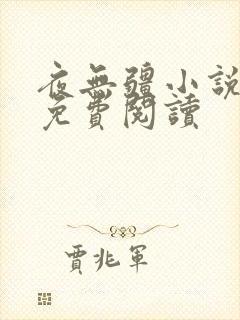 夜無疆小說
免費閱讀
賈兆軍